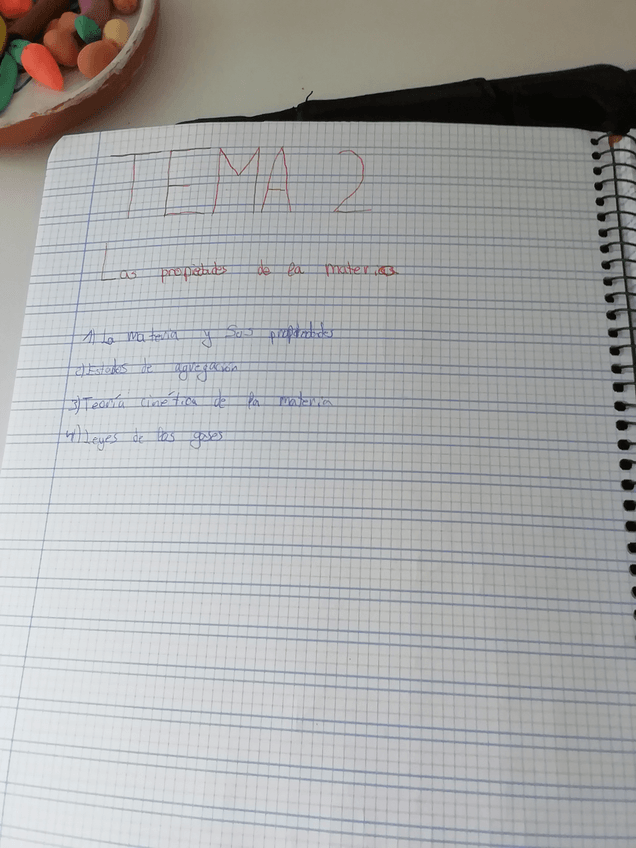 TEMA 2
Las propiedades de la materia
1) La materia y sus propiedades
2) Estados de agregación
3) Teoría cinética de la materia
4) Leyes de los gases